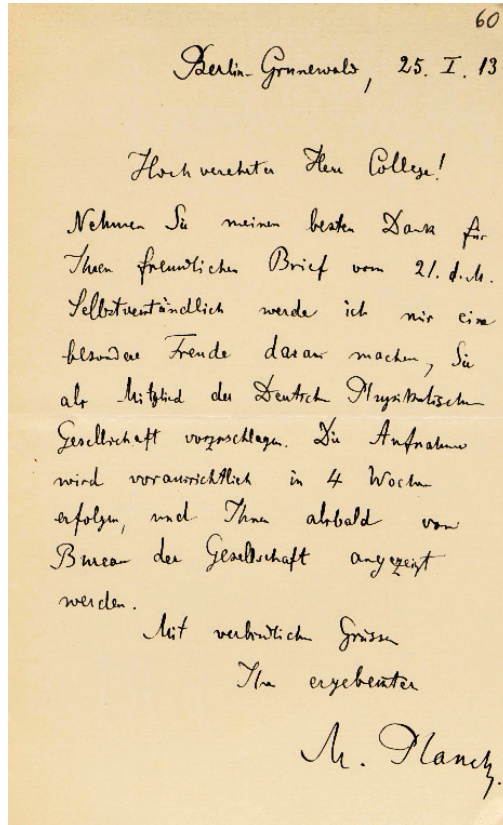 60
Berlin-Grunewald, 25. I. 13
Hochverehrter Herr College!
Nehmen Sie meinen besten Dank für
Ihren freundlichen Brief vom 21. d. M.
Selbstverständlich werde ich mir eine
besondere Freude daraus machen, Sie
als Mitglied der Deutschen Physikalischen
Gesellschaft vorzuschlagen. Die Aufnahme
wird voraussichtlich in 4 Wochen
erfolgen, und Ihnen alsbald vom
Bureau der Gesellschaft angezeigt
werden.
Mit verbindlichen Grüssen
Ihr ergebenster
M. Planck.